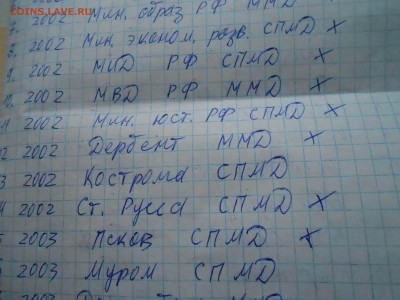 COINS.LAVE.RU
2002 Мин. образ РФ ММД
2002 Мин. эконом. разв. СПМД X
9. 2002 МИД РФ СПМД X
10. 2002 МВД РФ ММД X
11 2002 Мин. юст. РФ СПМД X
12 2002 Дербент ММД X
3 2002 Кострома СПМД
4 2002 Ст. Русса СПМД X
5 2003 Псков СПМД X
2003 Муром СПМД